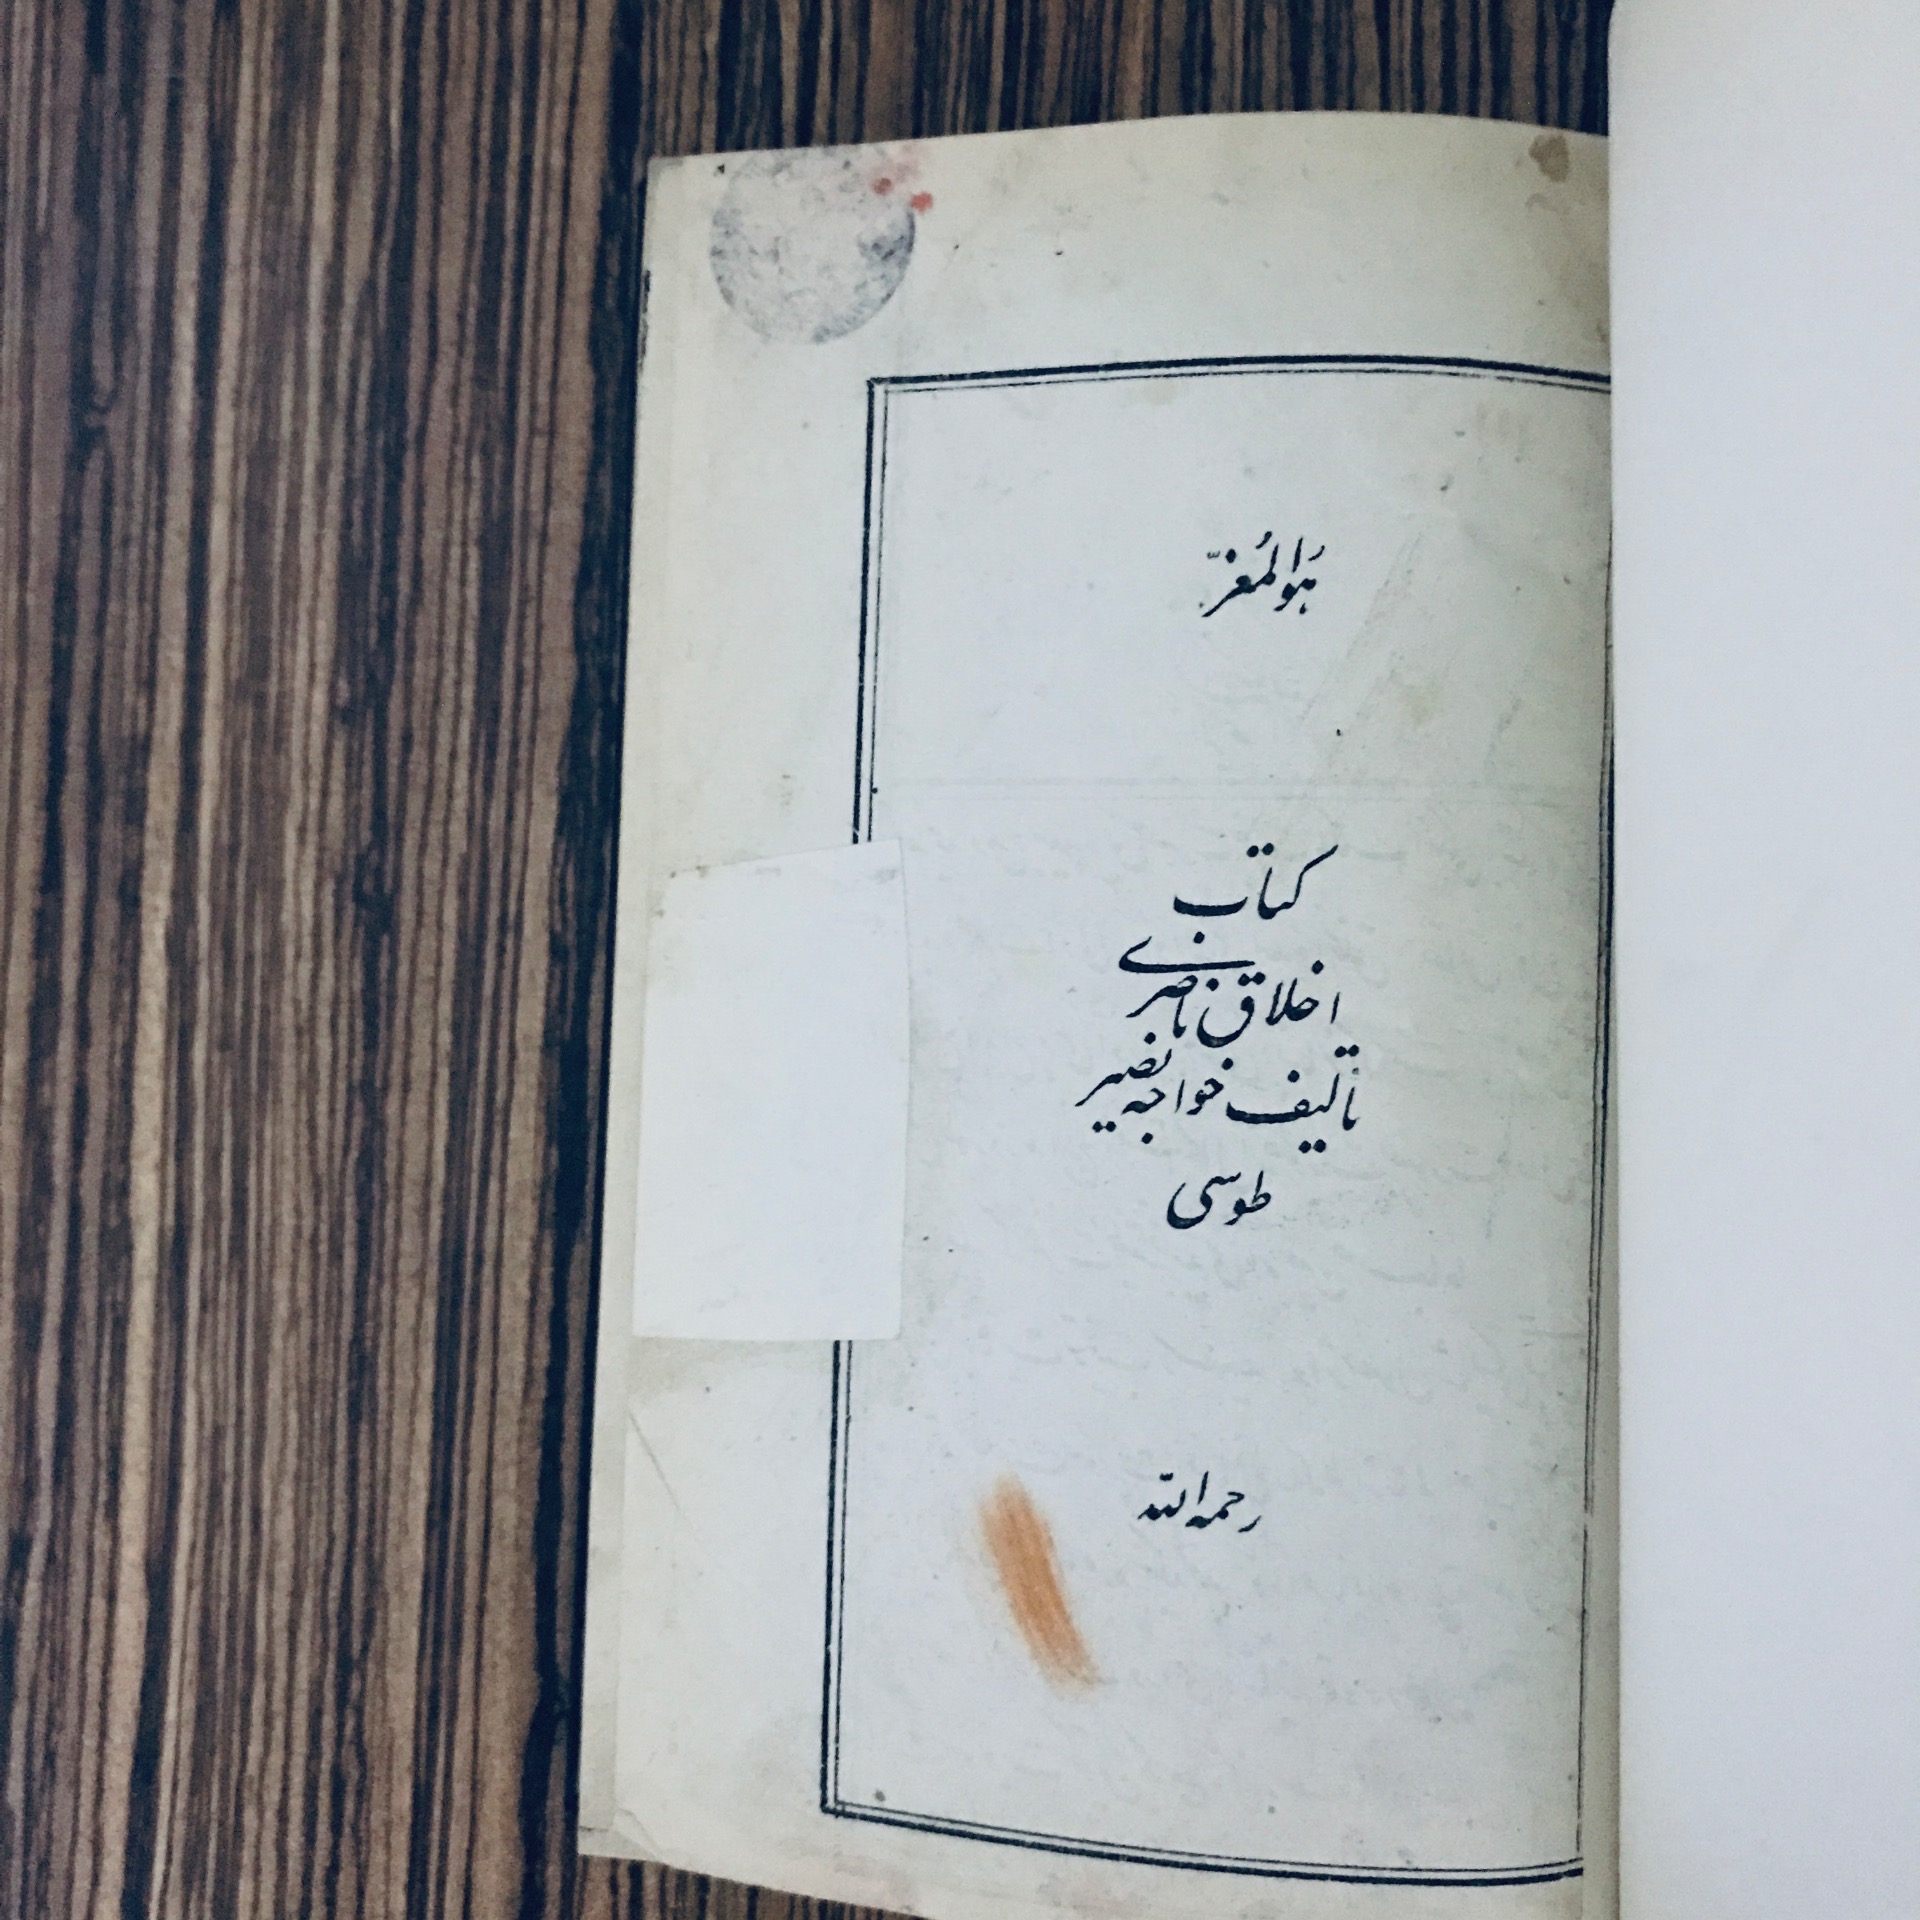 هُوَالمُعِزّ
کتاب
اخلاق ناصری
تألیف خواجه نصیر
طوسی
رحمه الله